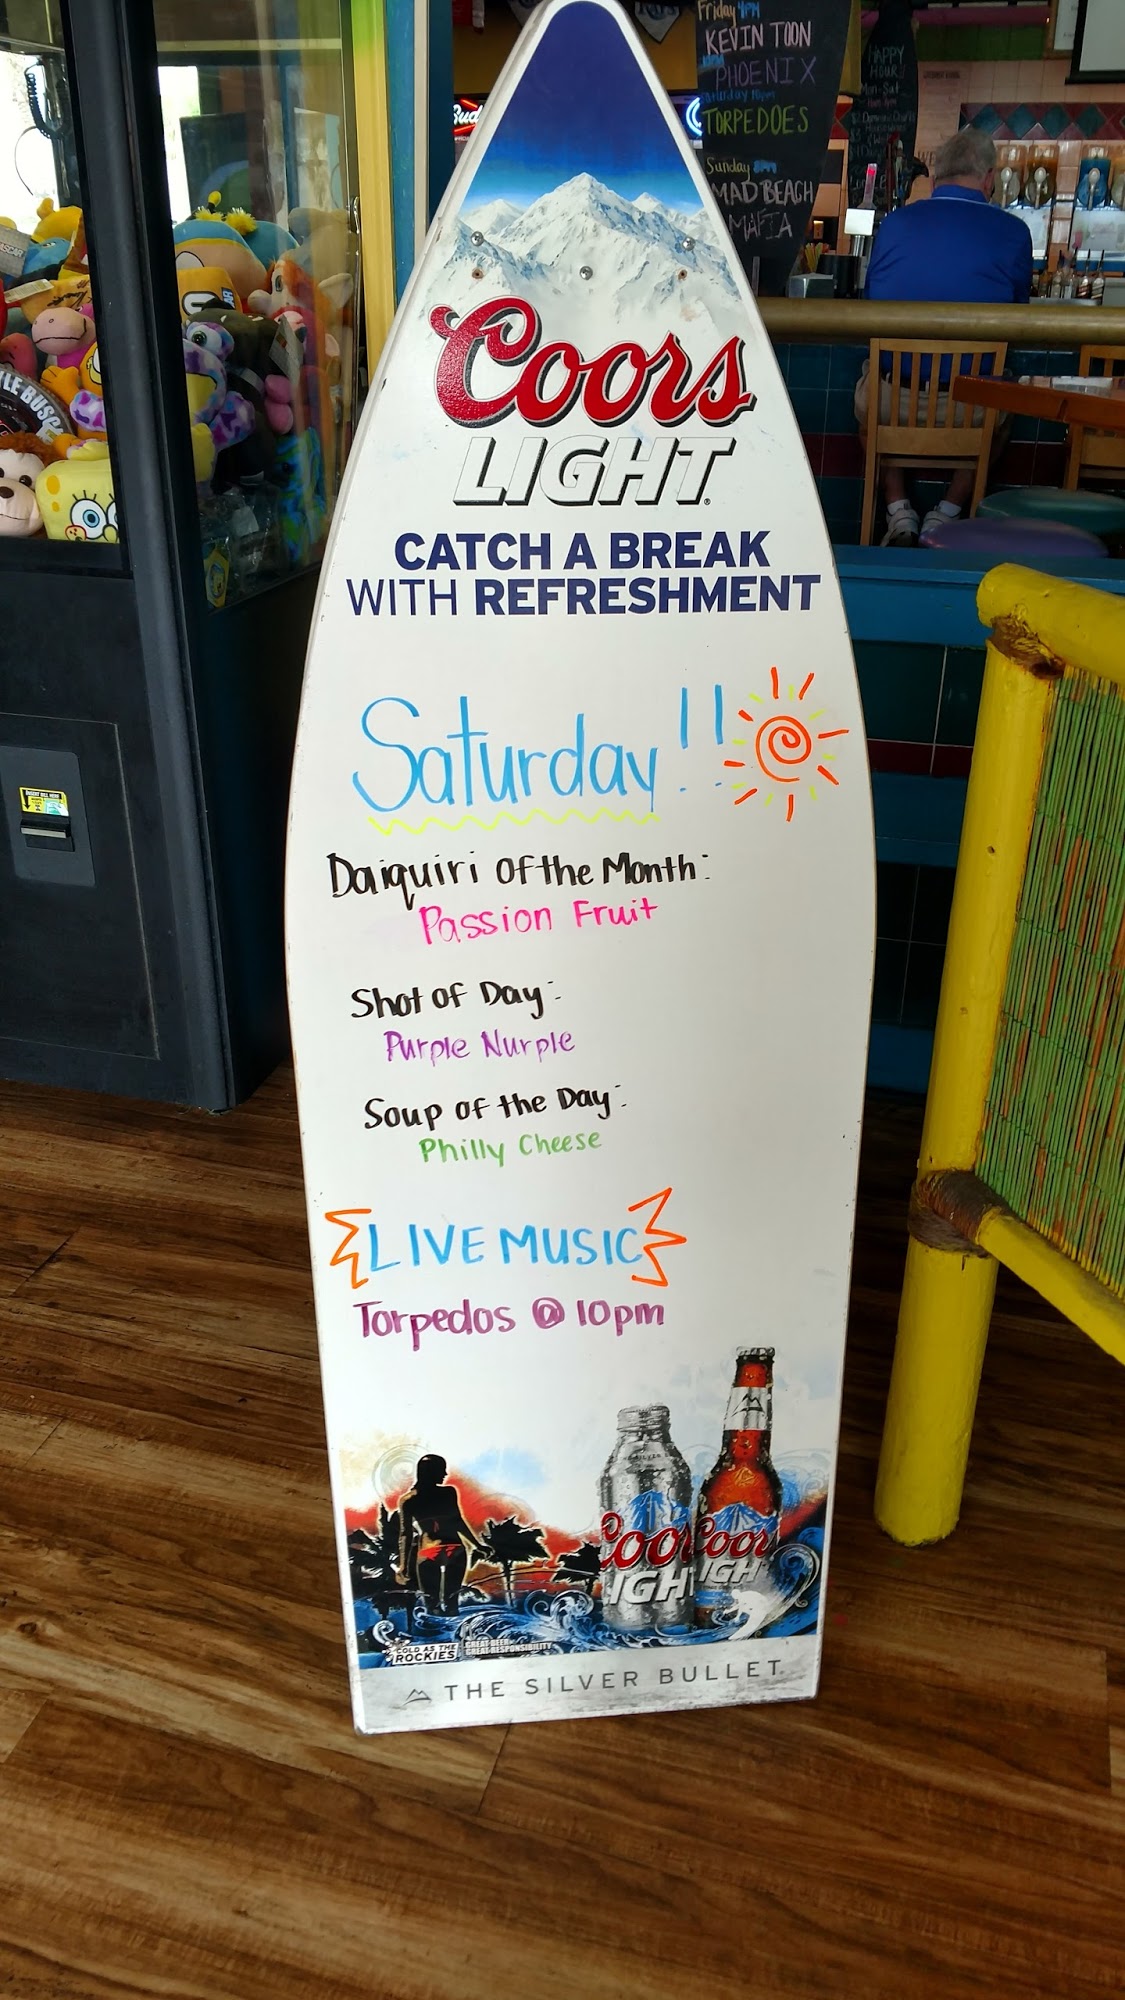 Friday 4PM
KEVIN TOON
PHOENIX
Saturday 10pm
TORPEDOES
Sunday
MAD BEACH
MAFIA
HAPPY
HOUR
Mon-Sat
Bud
Coors
LIGHT
CATCH A BREAK
WITH REFRESHMENT
Saturday!!
Daiquiri Of the Month:
Passion Fruit
Shot of Day:
Purple Nurple
Soup of the Day:
Philly Cheese
LIVE MUSIC
Torpedos @ 10pm
Coors Coors
LIGHT LIGHT
COLD AS THE
ROCKIES
GREAT BEER
GREAT RESPONSIBILITY
THE SILVER BULLET